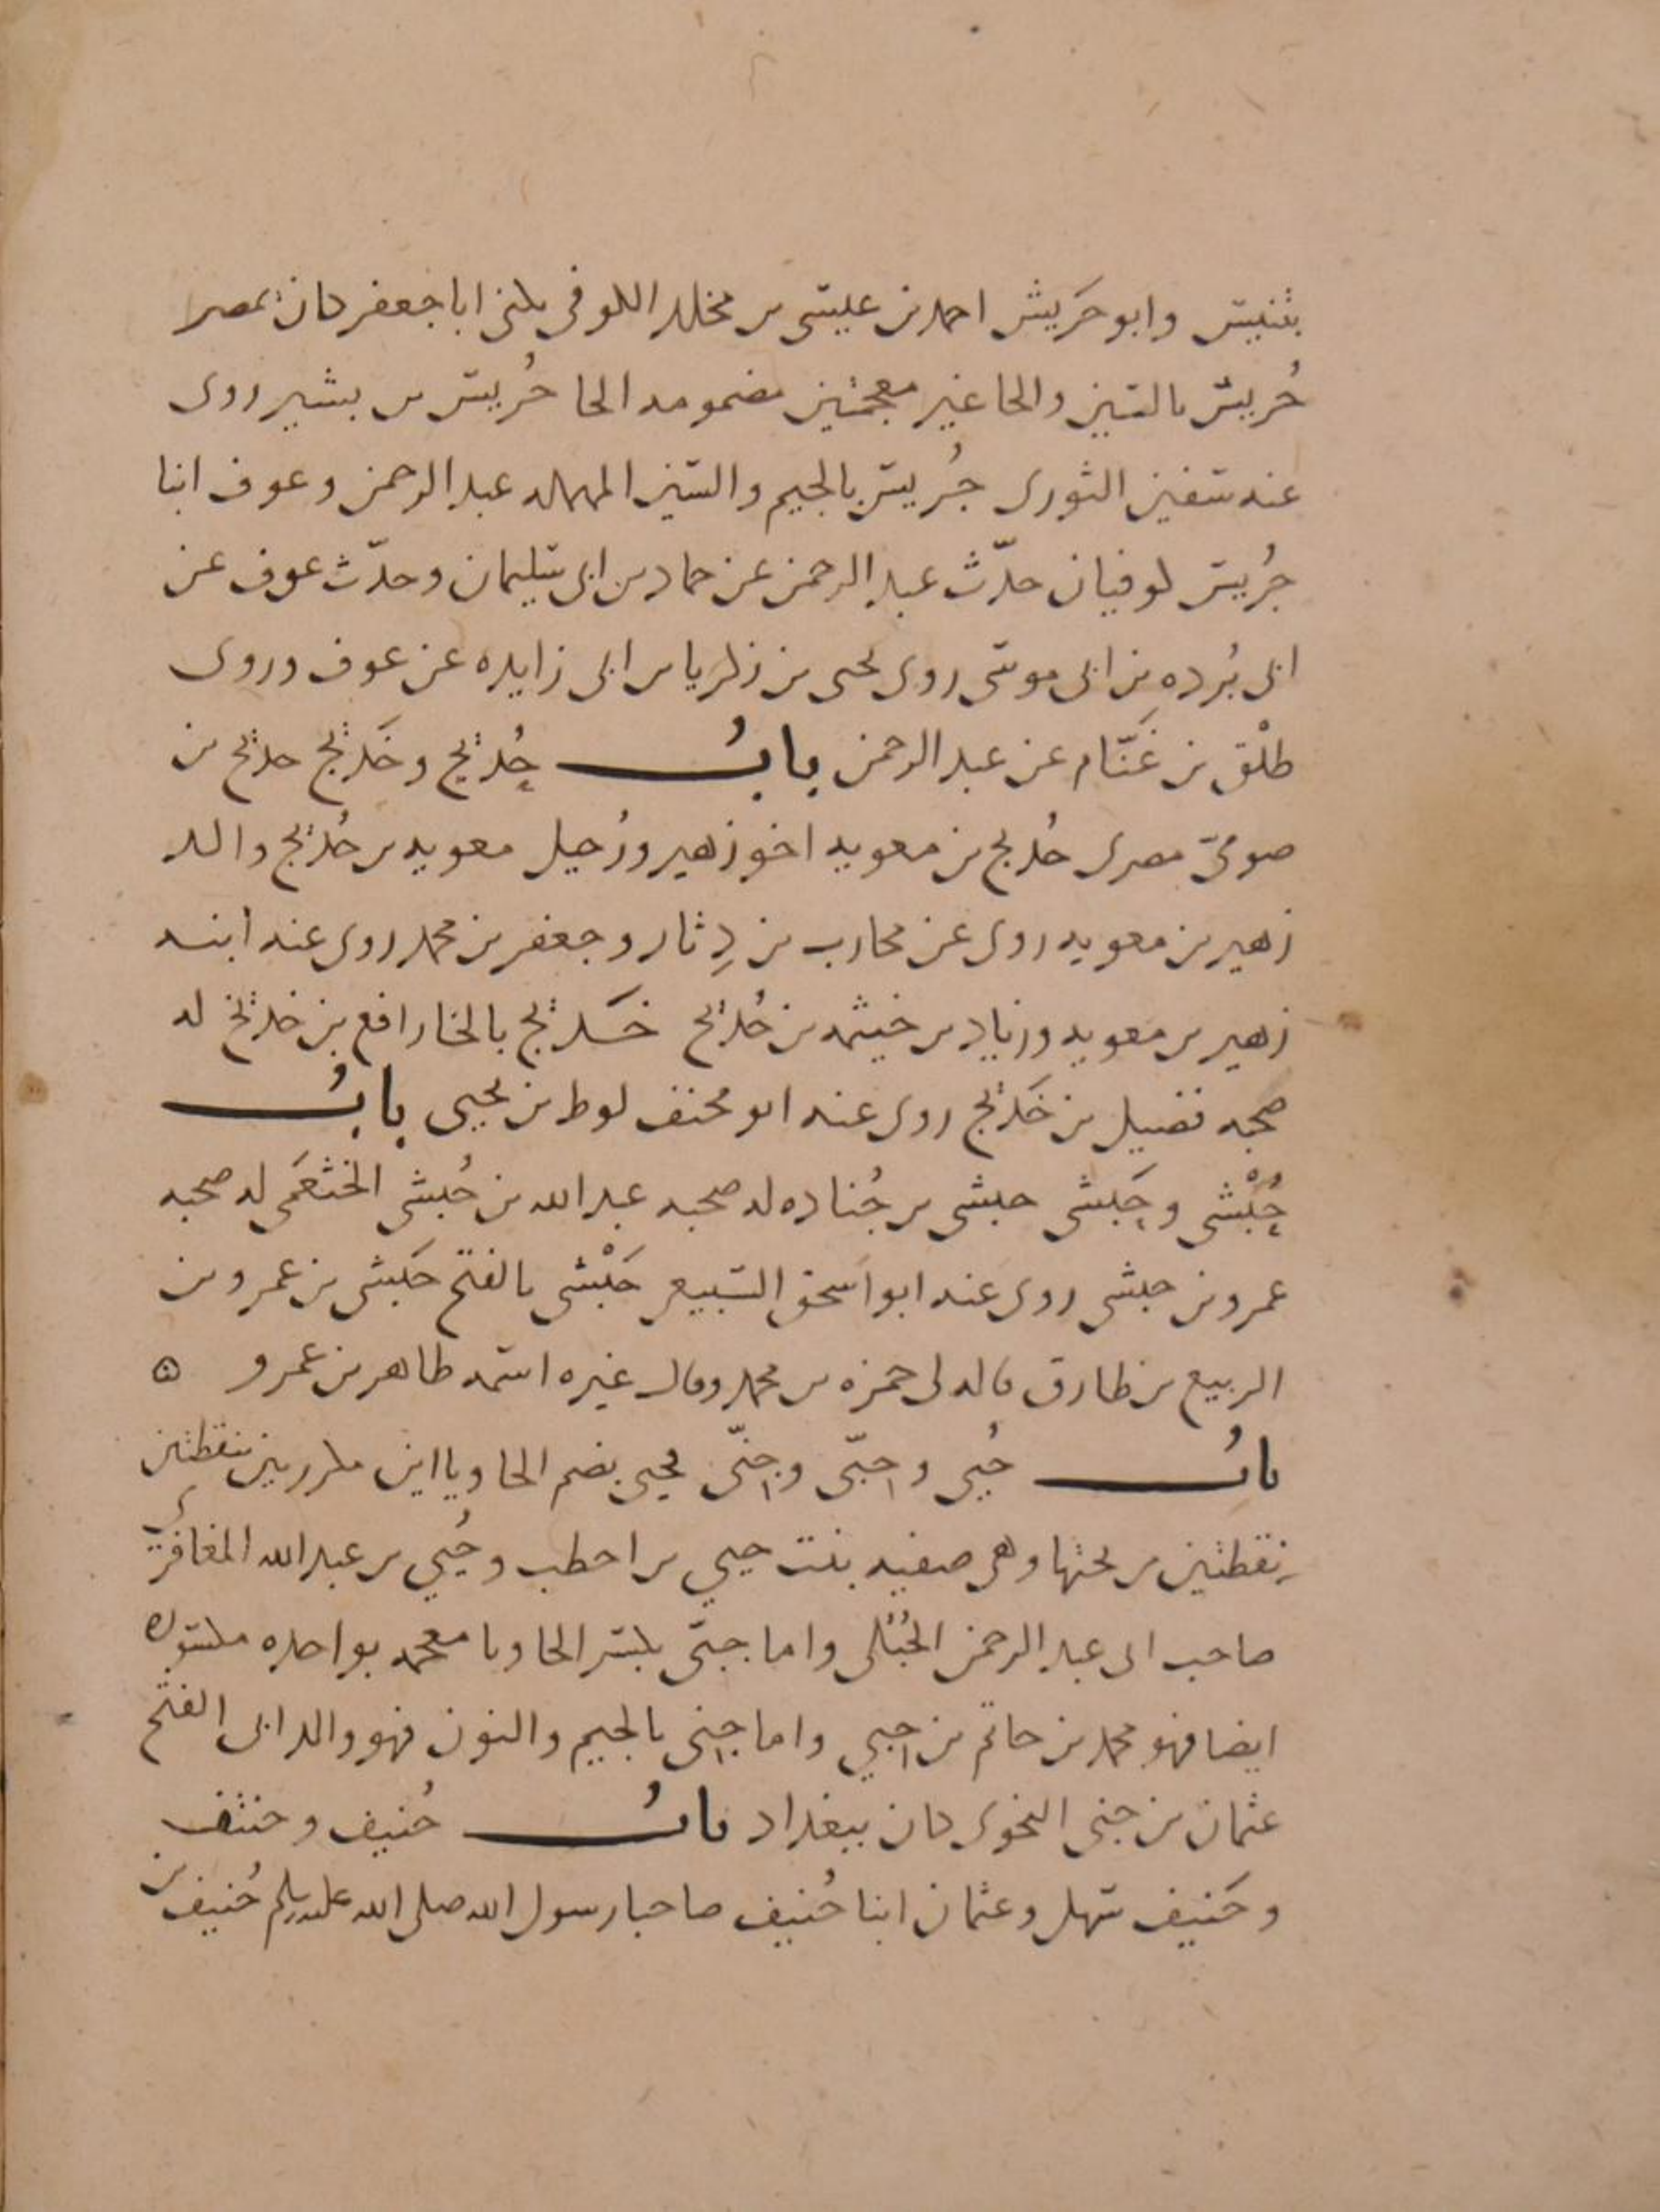 بتنيس وابو حَريش احمد بن عيسى بن مخلد الكوفى يكنى ابا جعفر كان بمصر
حُريس بالسين والحا غير معجمتين مضمومه الحا حُريس بن بشير روى
عنه سفين الثورى جُريس بالجيم والسين المهمله عبد الرحمن وعوف ابنا
جُريس كوفيان حدّث عبد الرحمن عن حماد بن ابى سليمان وحدّث عوف عن
ابى بُرده بن ابى موسى روى يحيى بن زكريا بن ابى زايده عن عوف وروى
طلْق بن غَنّام عن عبد الرحمن بابُ حُديج وخَديج حديج بن
صومىّ مصرى حُديج بن معويه اخو زهير ورُحيل معويه بن حُديج والد
زهير بن معويه روى عن محارب بن دِثار وجعفر بن محمد روى عنه ابنه
زهير بن معويه وزياد بن خيثمه بن حُديج خَديج بالخا رافع بن خديج له
صحبه فضيل بن خَديج روى عنه ابو مخنف لوط بن يحيى بابُ
حُبْشى وحَبشى حبشى بن جُناده له صحبه عبد الله بن حُبشى الخثعَمى له صحبه
عمرو بن حبشى روى عنه ابو اسحق السبيعى حَبْشى بالفتح حَبشى بن عمرو بن
الربيع بن طارق قاله لى حمزه بن محمد وقال غيره اسمه طاهر بن عمرو ه
بابُ حُيى وحِبّى وجِنّى حيى بضم الحا وياين مكررين بنقطتين
بنقطتين من تحتها وهى صفيه بنت حيي بن اخطب وحُيي بن عبد الله المعافرى
صاحب ابى عبد الرحمن الحُبُلى واما حبّى بكسر الحا وبا معجمه بواحده مكسوره
ايضا فهو محمد بن حاتم بن حِبي واما جِنى بالجيم والنون فهو والد ابى الفتح
عثمان بن جنى النحوى كان ببغداد بابُ حُنيف وحنتف
وحَنيف سهل وعثمان ابنا حُنيف صاحبا رسول الله صلى الله عليه وسلم حُنيف بن